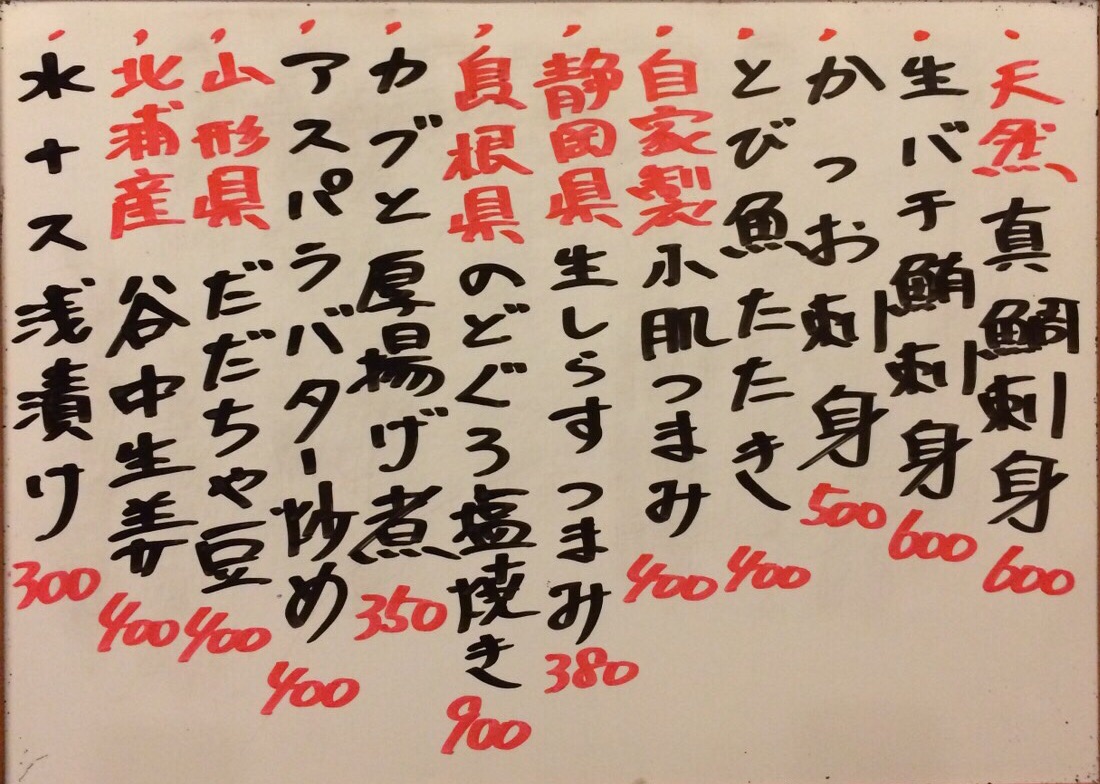 天然 真鯛刺身 600
生バチ鮪刺身 600
かつお刺身 500
とび魚たたき 400
自家製 小肌つまみ 400
静岡県 生しらすつまみ 380
島根県のどぐろ塩焼き 900
カブと厚揚げ煮 350
アスパラバター炒め 400
山形県 だだちゃ豆 400
北浦産 谷中生姜 400
水ナス浅漬け 300